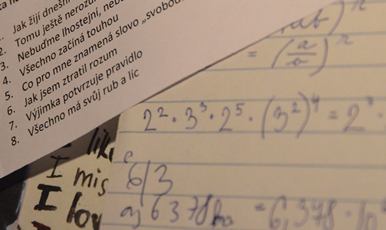 Jak žijí dnešní
2. Tomu ještě nerozu
3. Nebuďme lhostejní, neb
4. Všechno začíná touhou
5. Co pro mne znamená slovo „svobod
6. Jak jsem ztratil rozum
7. Výjimka potvrzuje pravidlo
8. Všechno má svůj rub a líc
= (a/b)^n
2² · 3³ · 2⁵ · (3²)⁴ = 2
I like
I mis
6/3
I lov
a) 6378 = 6,378 · 10